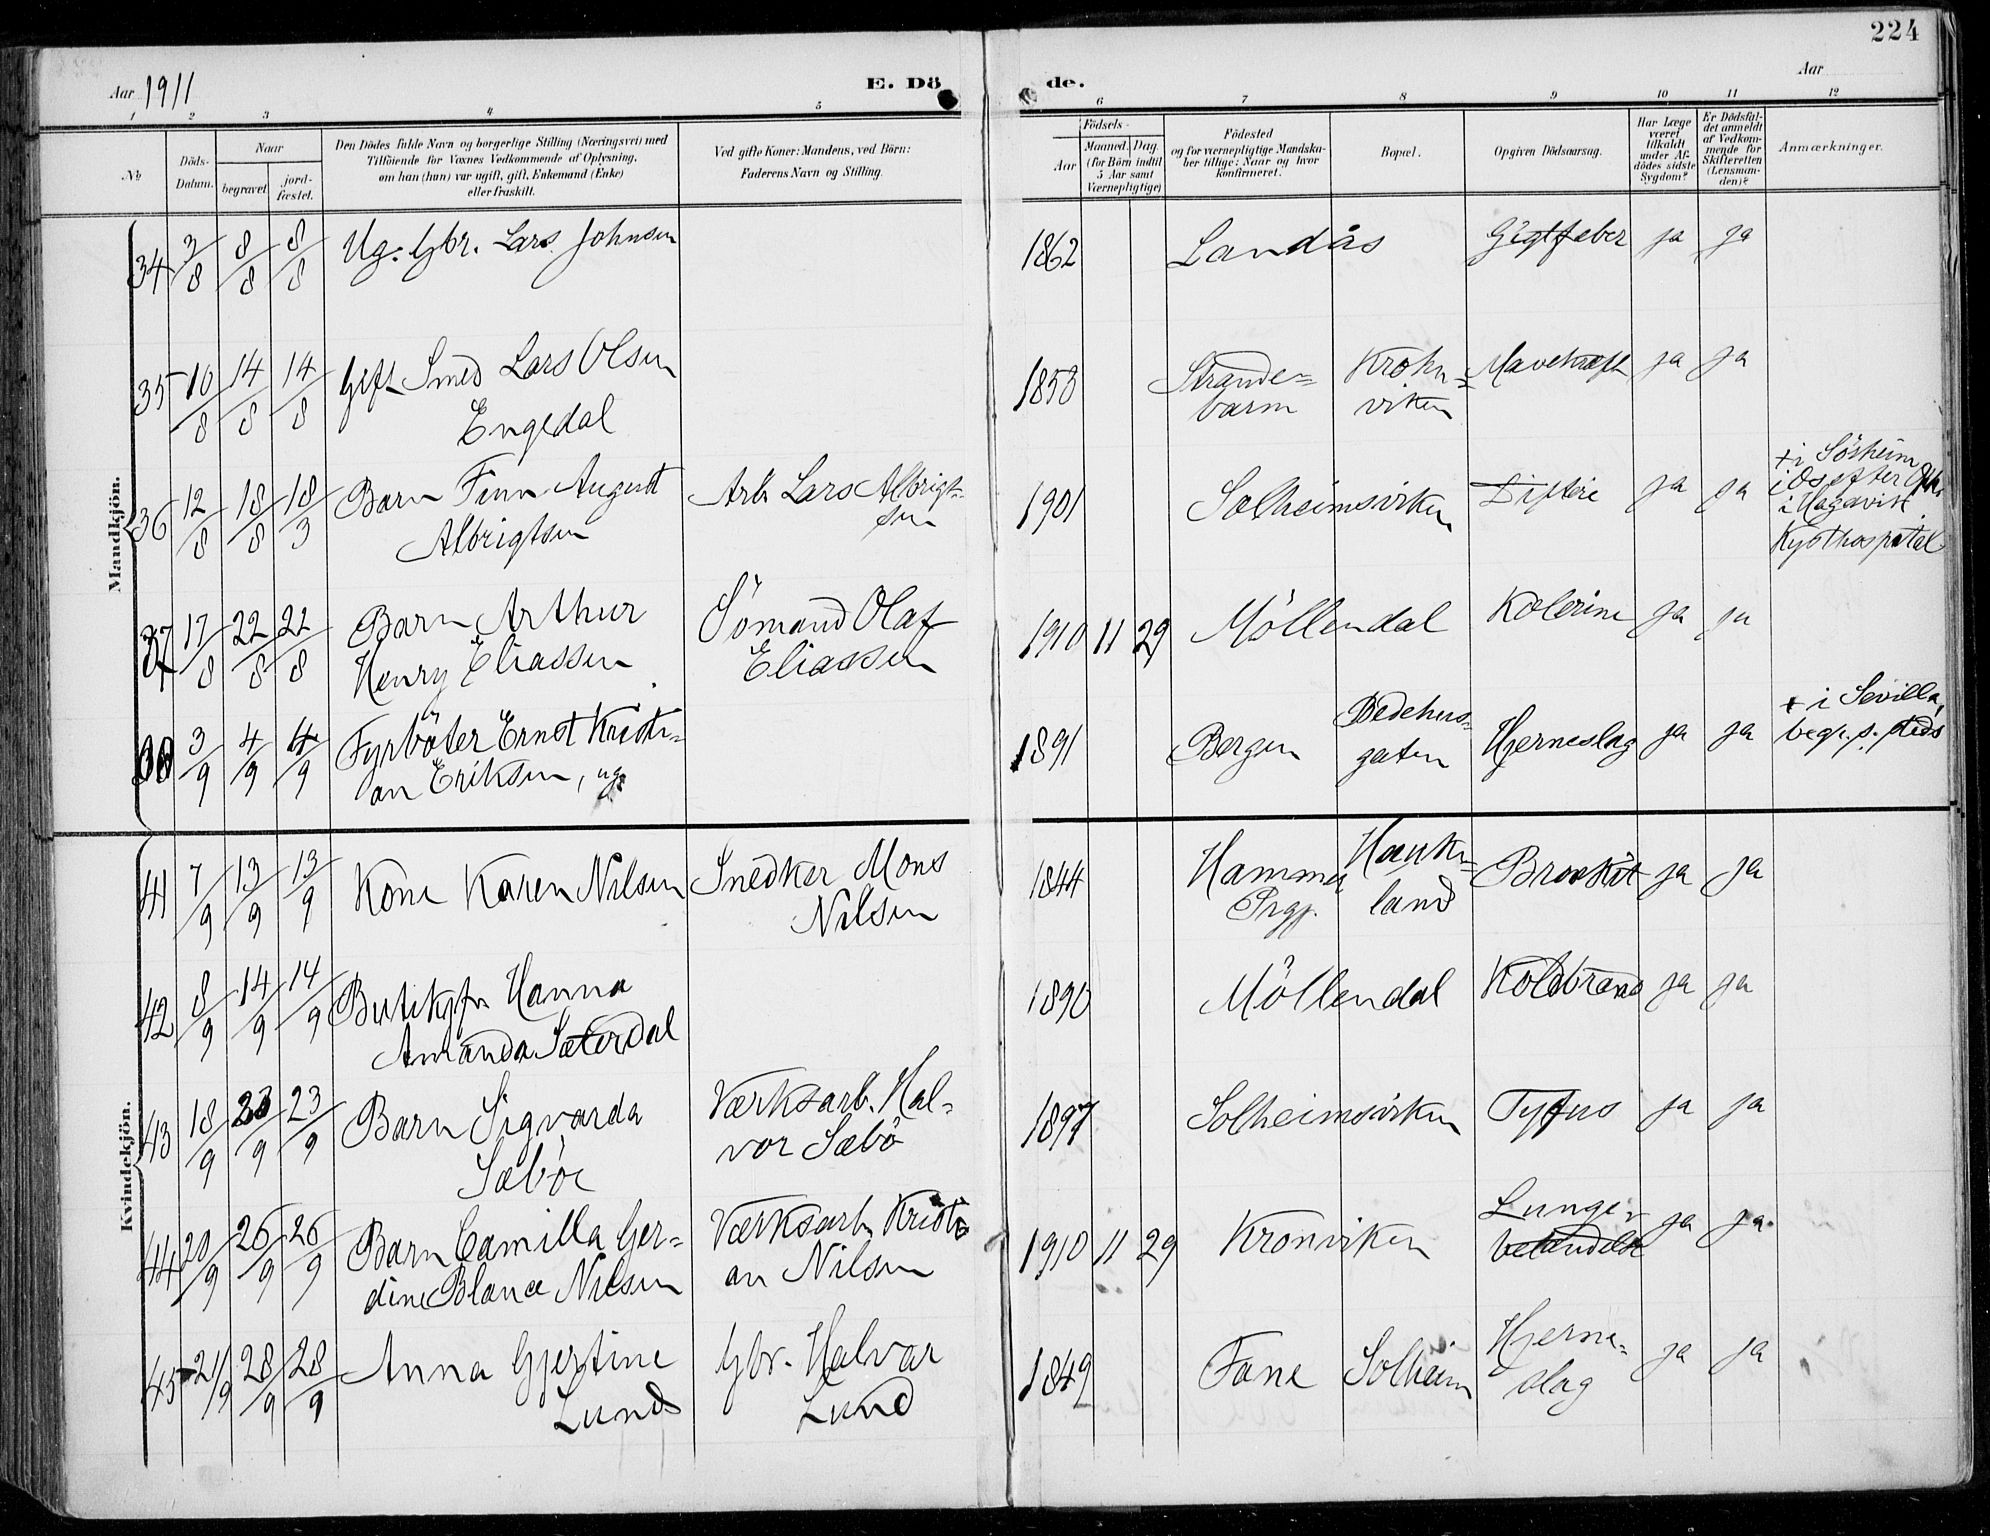 224
Aar 1911
E. Dö de.
Aar
1 2 3 4 5 6 7 8 9 10 11 12
No
Döds-Datum.
Naar
begravet
jord-fæstet.
Den Dödes fulde Navn og borgerlige Stilling (Næringsvei) med
Tilföiende for Voxnes Vedkommende af Oplysning,
om han (hun) var ugift, gift, Enkemand (Enke)
eller fraskilt.
Ved gifte Koner: Mandens, ved Börn:
Faderens Navn og Stilling.
Födsels-
Aar
Maaned. Dag.
(for Börn indtil
5 Aar samt
Værnepligtige)
Födested
og for værnepligtige Mandska-
ber tillige: Naar og hvor
konfirmeret.
Bopæl.
Opgiven Dödsaarsag.
Har Læge
været
tilkaldt
under Af-
dödes sidste
Sygdom?
Er Dödsfal-
det anmeldt
af Vedkom-
mende for
Skifteretten
(Lensman-
den)?
Anmærkninger.
Mandkjön.
34 3/8 8/8 8/8 Ug. Gbr. Lars Johnsen 1862 Landås Gigtfeber ja ja
35 10/8 14/8 14/8 Gift Smed Lars Olsen
Engedal
1853 Strande=
barm
Krohn=
viken
Mavekræft ja ja
36 12/8 18/8 18/3 Barn Finn August
Albrigtsen
Arb. Lars Albrigt-
sen
1901 Solheimsviken Difteri ja ja
+ i
i Os efter
i Hagavik
Kysthospital
37 17/8 22/8 22/8 Barn Arthur
Henry Eliassen
Sömand Olaf
Eliassen
1910 11 29 Möllendal Kolerine ja ja
38 3/9 4/9 4/9 Fyrböter Ernst Kristi=
an Eriksen, ug.
1891 Bergen Bedehus=
gaten
Hjerneslag ja ja
+ i Sevilla,
begr. s. steds
Kvindekjön.
41 7/9 13/9 13/9 Kone Karen Nilsen Snedker Mons
Nilsen
1844 Hammer
Prgj.
Hauke=
land
Bronkit ja ja
42 8/9 14/9 14/9 Butikfr Hanna
Amanda Sæterdal
1890 Möllendal Koldbrand ja ja
43 18/9 23/9 23/9 Barn Sigvarda
Sæböe
Værksarb. Hal-
vor Sæbö
1897 Solheimsviken Tyfus ja ja
44 20/9 26/9 26/9 Barn Camilla Ger=
dine Blanca Nilsen
Værksarb. Kristi
an Nilsen
1910 11 29 Kronviken Lunge-
betændelse
ja ja.
45 21/9 28/9 28/9 Anna Gjertine
Lund
Gbr. Halvar
Lund
1849 Fane Solheim Hjerne-
slag
ja ja